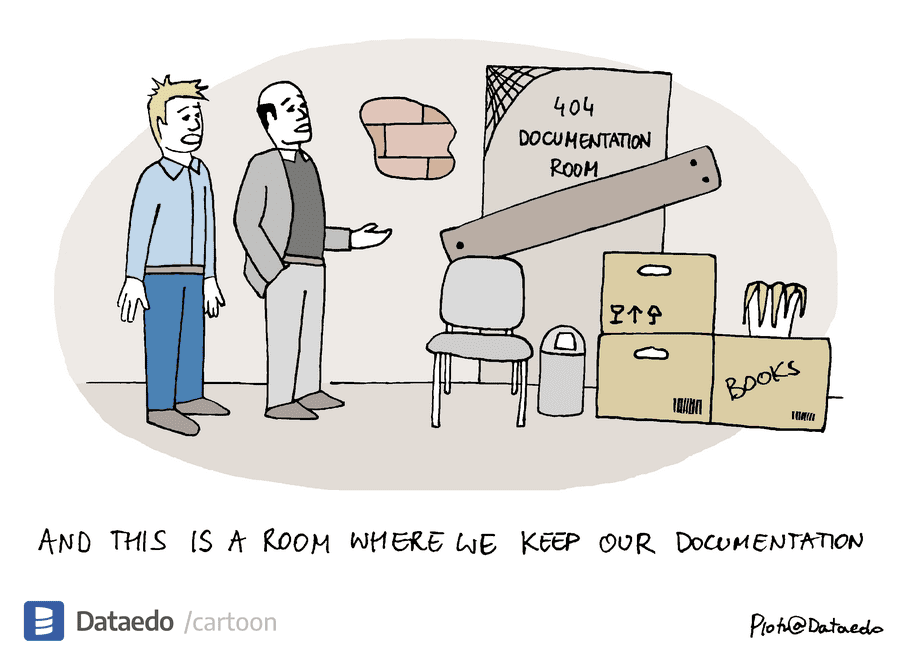 404
DOCUMENTATION
ROOM
BOOKS
AND THIS IS A ROOM WHERE WE KEEP OUR DOCUMENTATION
Dataedo /cartoon
Piotr@Dataedo